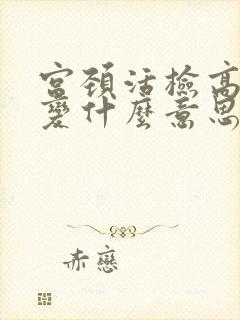 宫颈活檢高
變什麼意思
赤戀